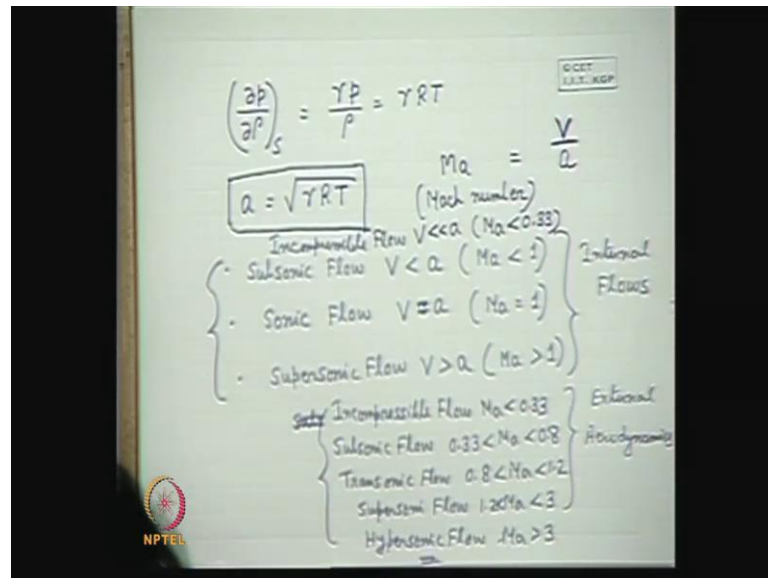 © CET
I.I.T. KGP
(∂p/∂ρ)_S = γp/ρ = γRT
a = √γRT
Ma = V/a
(Mach number)
Incompressible Flow V<<a (Ma<0.33)
· Subsonic Flow V < a (Ma < 1)
· Sonic Flow V = a (Ma = 1)
· Supersonic Flow V > a (Ma > 1)
Internal
Flows
Incompressible Flow Ma<0.33
Subsonic Flow 0.33<Ma<0.8
Transonic Flow 0.8<Ma<1.2
Supersoni Flow 1.2<Ma<3
Hypersonic Flow Ma>3
External
Aerodynamics
NPTEL